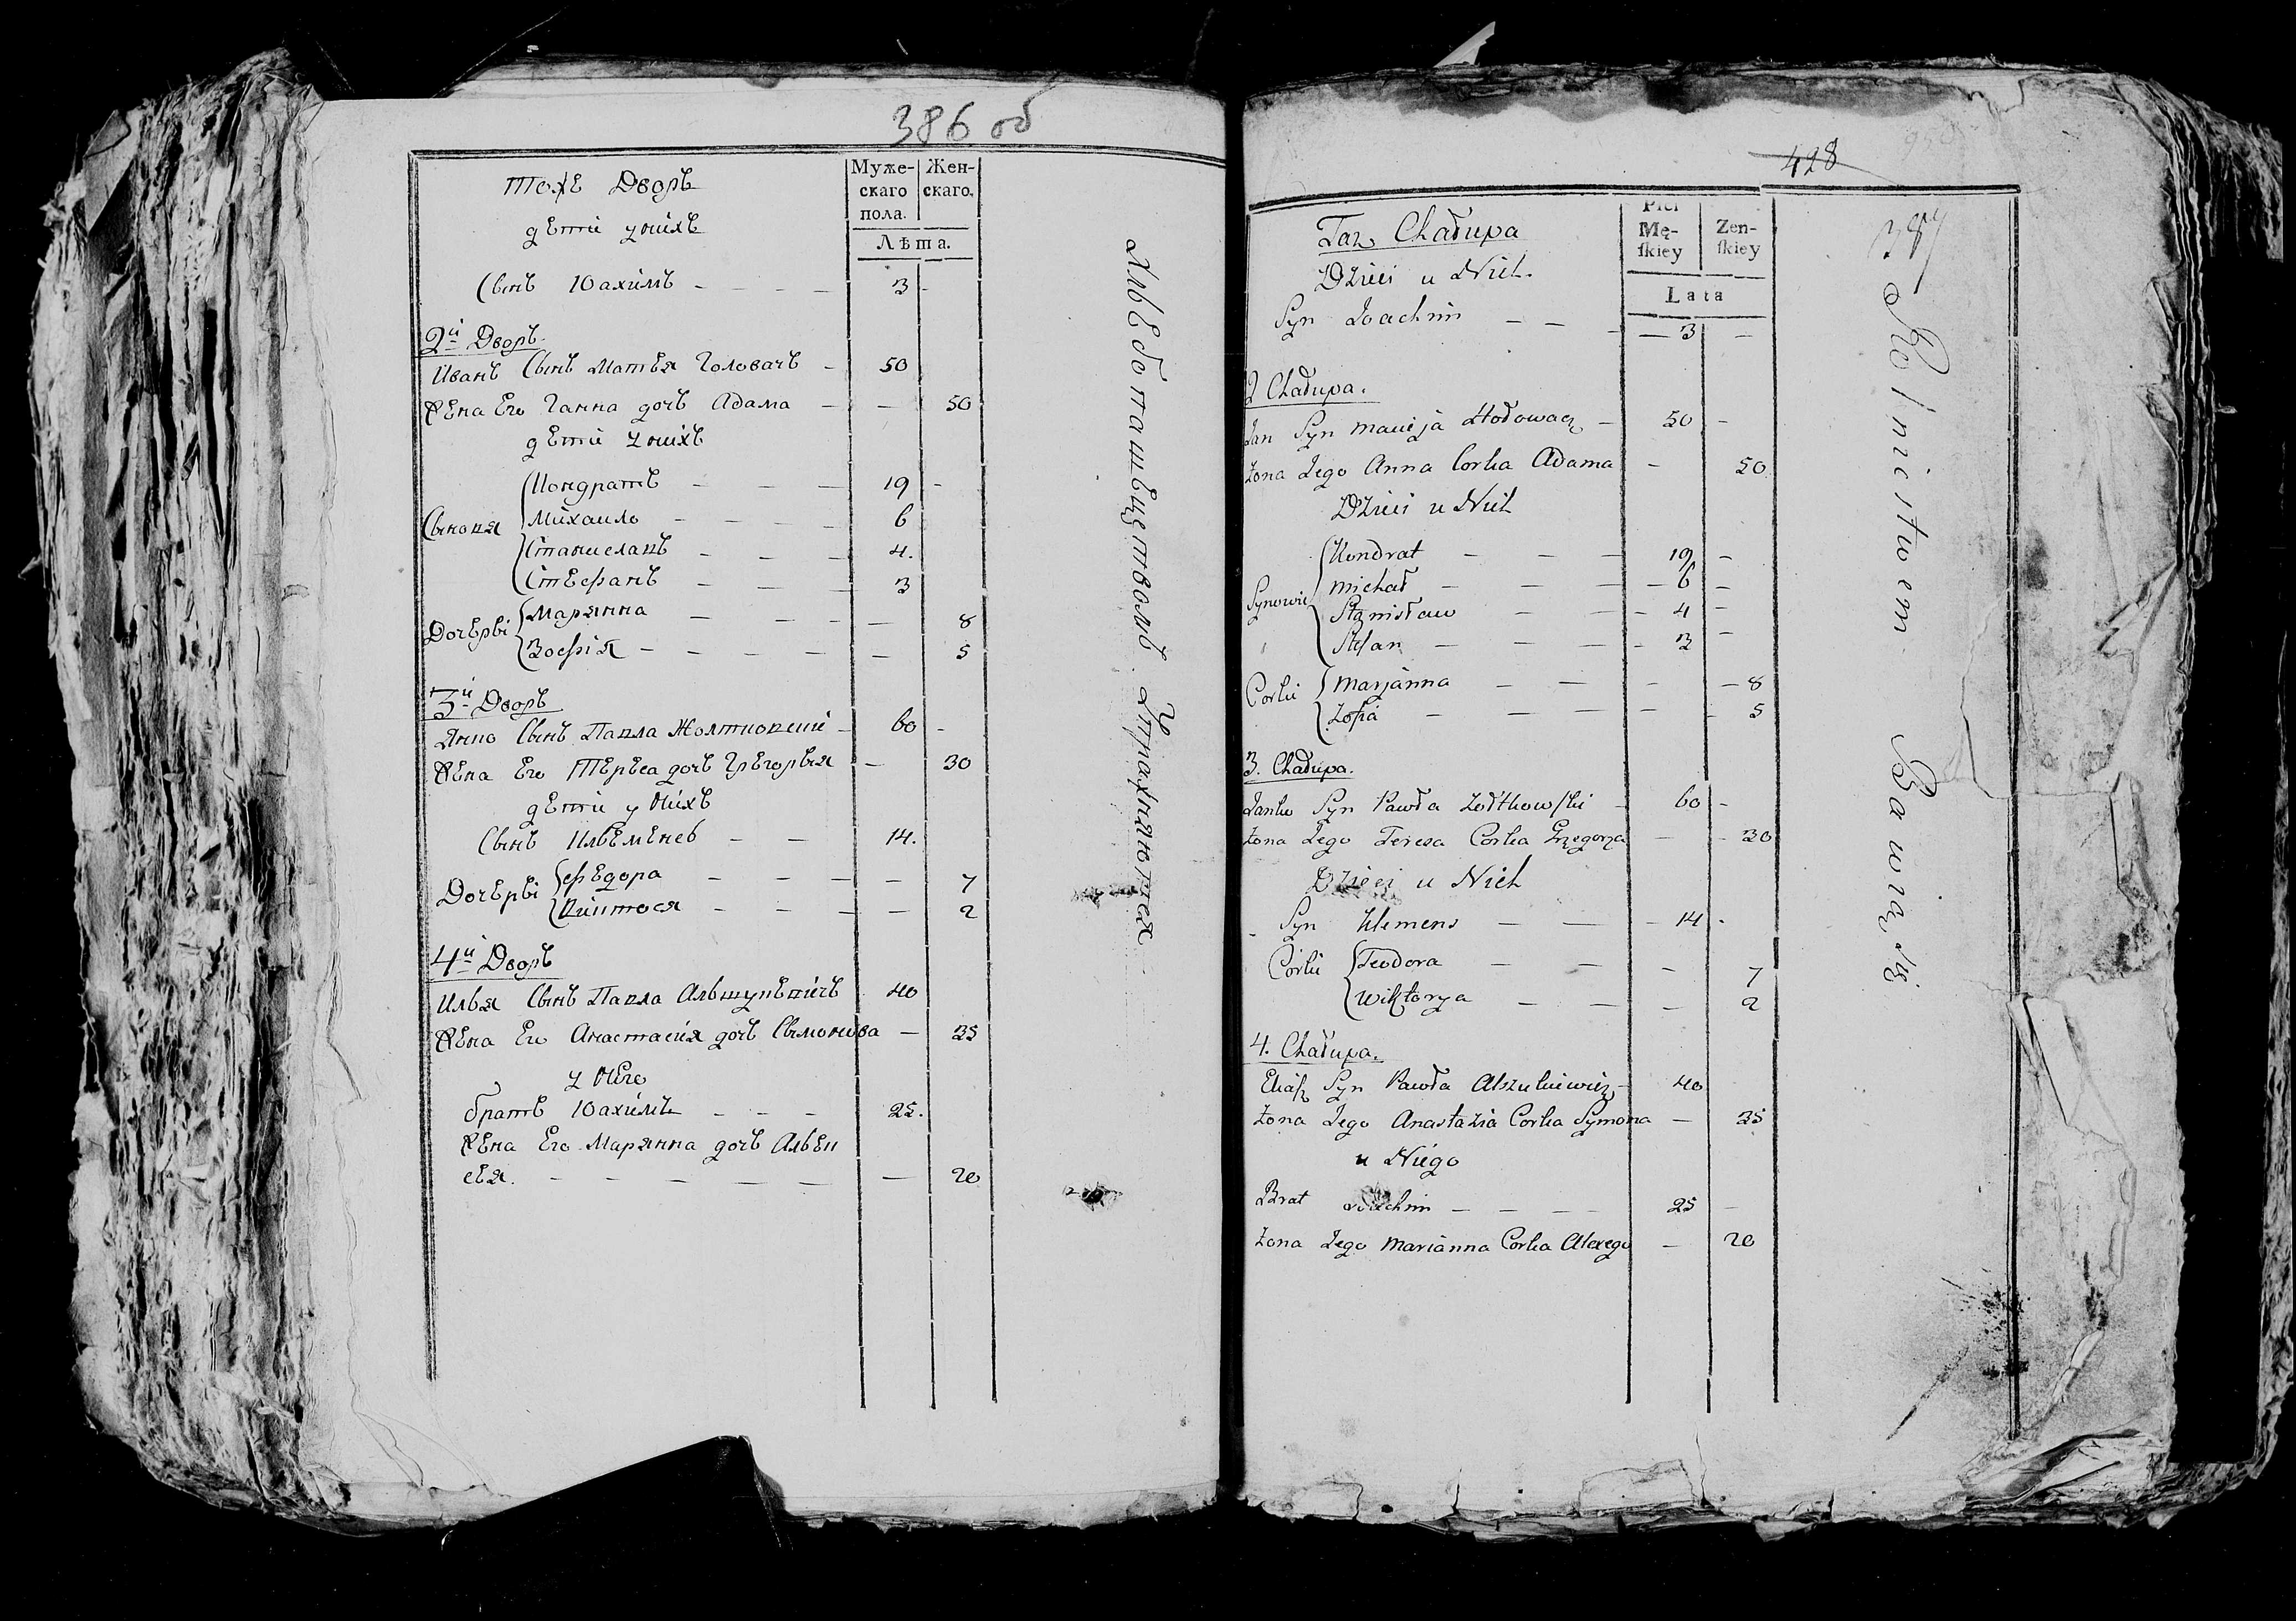 386 об
тоже Дворъ
Муже-скаго пола.
Жен-скаго.
дети у нихъ
Лѣта.
Сынъ Юахимъ - - - - 3 -
2й Дворъ
Иванъ Сынъ Матвея Головачъ - 50
Жена Его Ганна дочъ Адама - - 50
дети у нихъ
Сыновя
Кондратъ - - - 19 -
Михаило - - - - 6
Станиславъ - - - 4.
Стефанъ - - - 3
Дочерѣи
Марянна - - - - 8
Зофия - - - - - 5
3й Дворъ
Янко Сынъ Павла Жолтковски - 60 -
Жена Его Тереса дочъ Грегорѣя - 30
дети у нихъ
Сынъ Клеменсъ - - 14.
Дочерѣи
Федора - - - - 7
Виктося - - - - 2
4й Дворъ
Илья Сынъ Павла Альшукевичъ 40
Жена Его Анастасия дочъ Сымонова - 35
у Него
братъ Юахимъ - - - 25.
Жена Его Марянна дочъ Алѣк
сѣя. - - - - - - 20
Хлѣбопашѣцтвомъ Упражняютцех
428
387
Taż Chałupa
Płci Mę-skiey
Zen-skiey
Dzieci u Nich.
Lata
Syn Joachim - - - 3 -
2 Chałupa.
Jan Syn Macieja Hołowacz - 50 -
Zona Jego Anna Corka Adama - 50
Dzieci u Nich
Synowie
Kondrat - - - 19 -
Michał - - - 6 -
Stanisław - - - 4 -
Stefan - - - 3 -
Corki
Marjanna - - - - 8
Zofia - - - - - 5
3. Chałupa.
Janko Syn Pawła Zołtkowski - 60 -
Zona Jego Teresa Corka Grzegorza - - 30
Dzieci u Nich
Syn Klemens - - - 14 -
Corki
Teodora - - - 7
Wiktorya - - - 2
4. Chałupa.
Eliasz Syn Pawła Alszukiewicz - 40
Zona Jego Anastazia Corka Symona - 35
u Niego
Brat Joachim - - - - 25 -
Zona Jego Marianna Corka Alexego - 20
Rolnictwem Bawią się